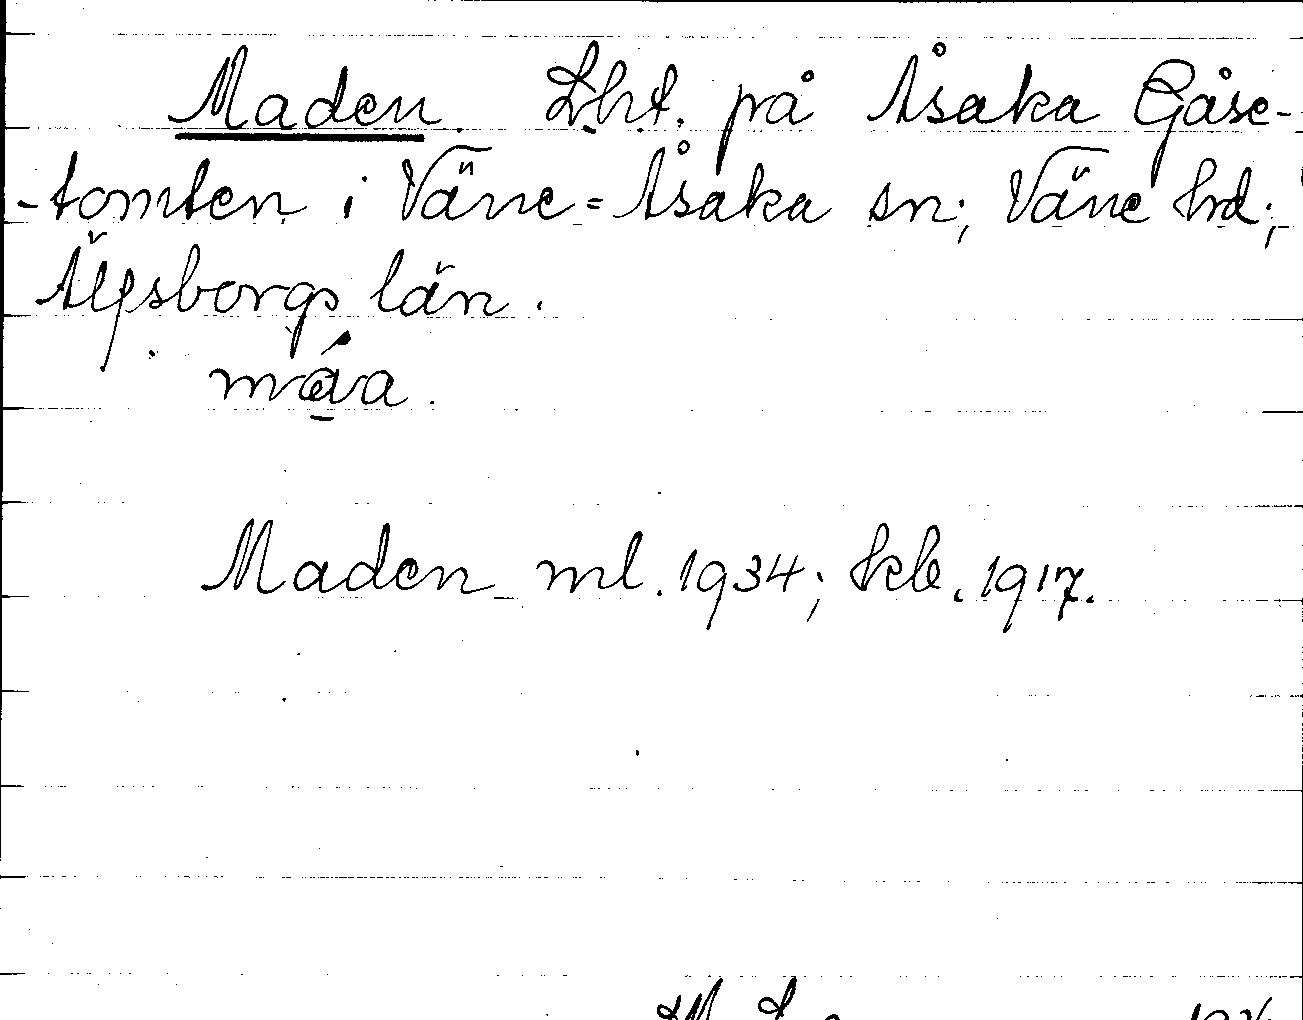 Maden. Lht. på Åsaka Gåse-
-tomten i Väne-Åsaka sn; Väne hd;
Älfsborgs län.
Maden ml. 1934; hkb. 1917.